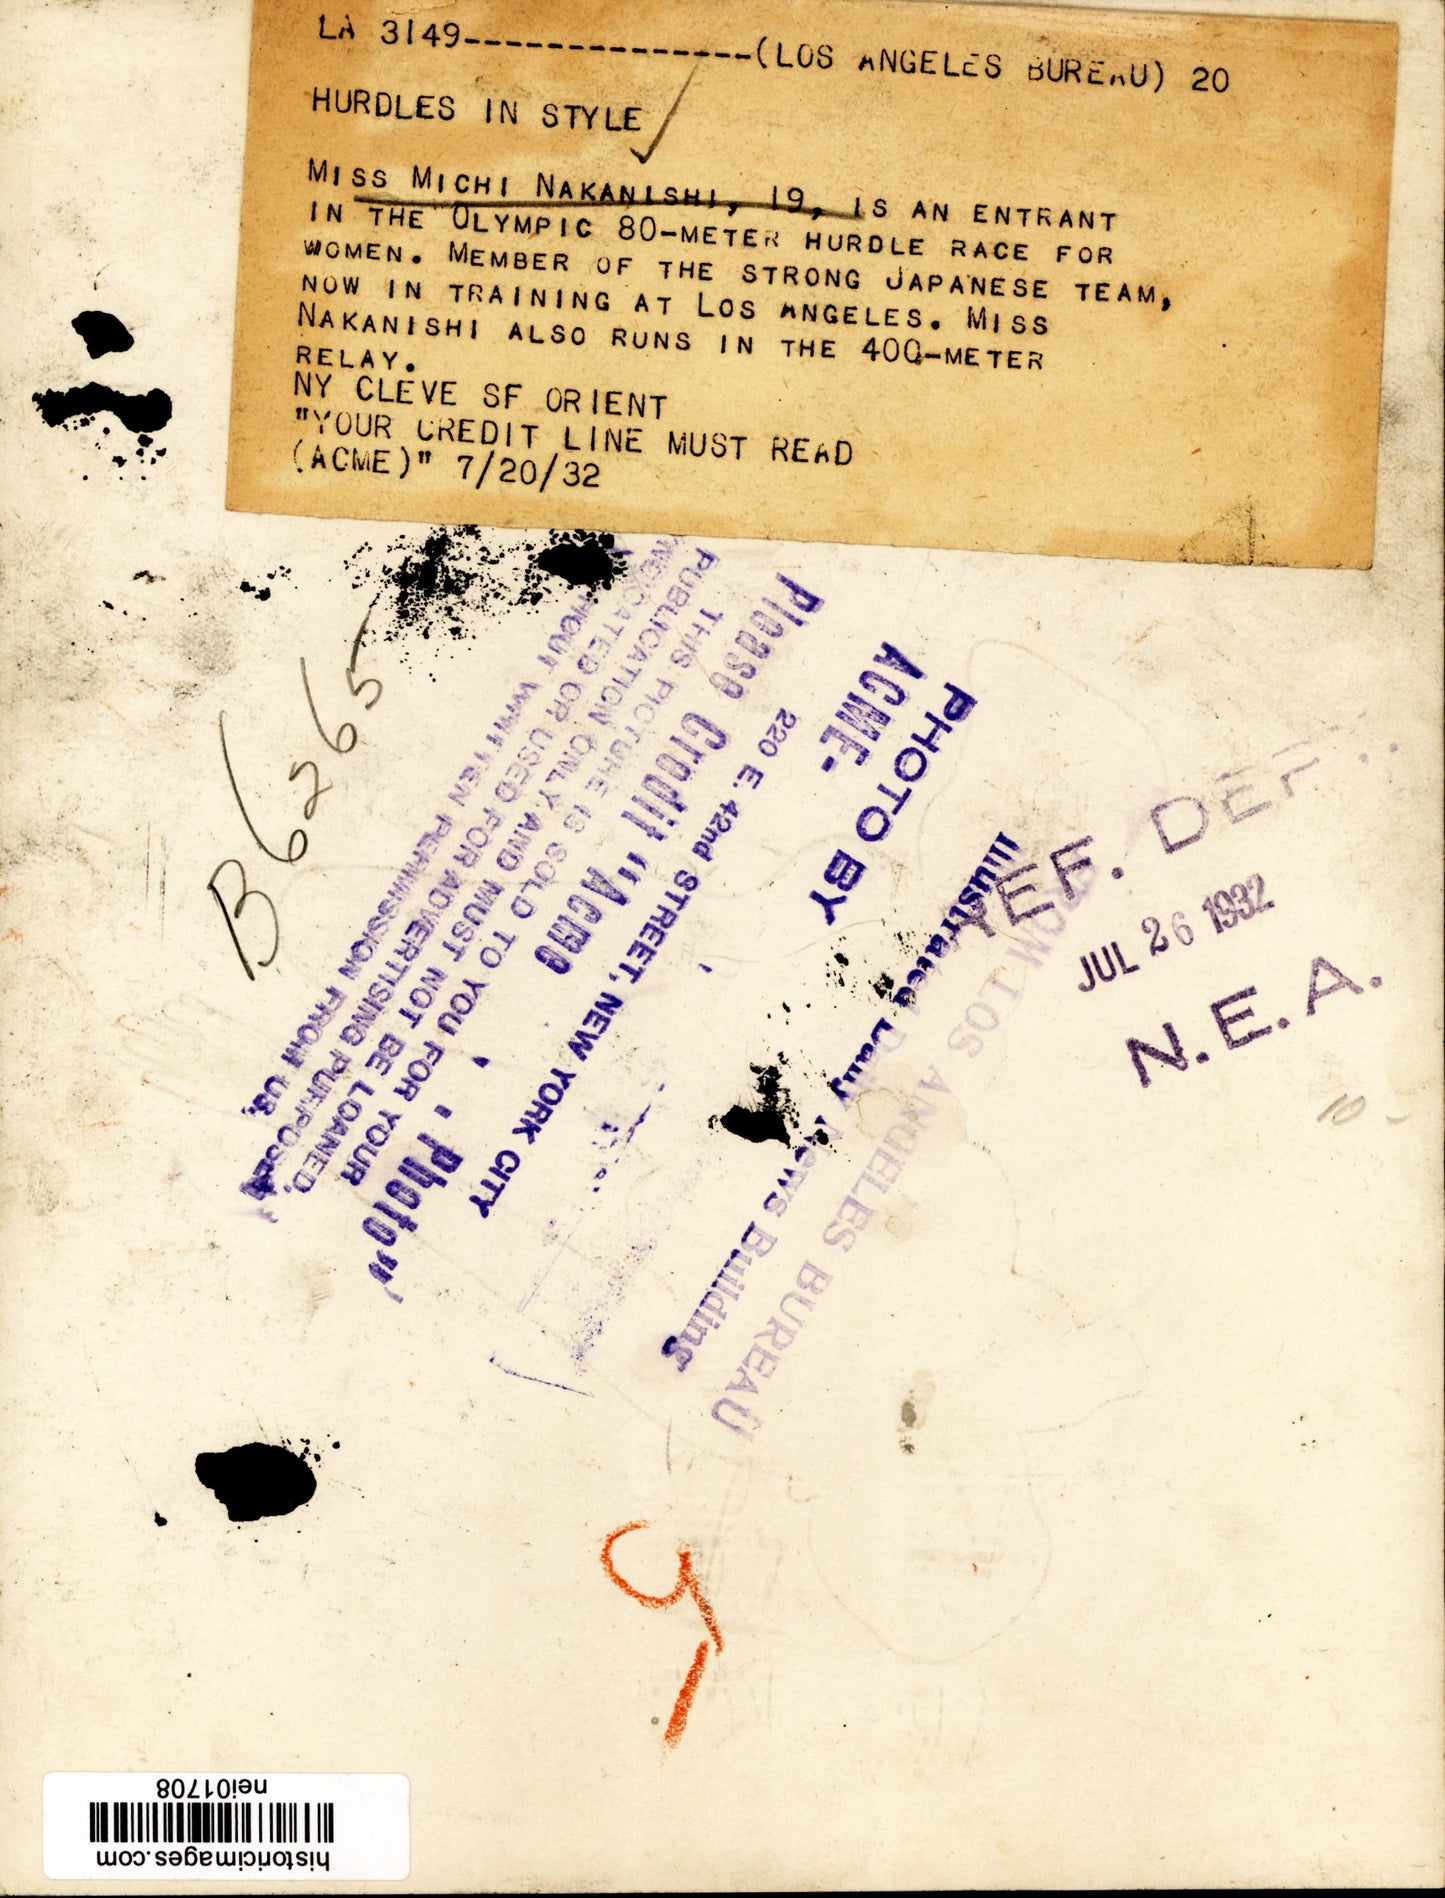 LA 3149---------------(LOS ANGELES BUREAU) 20
HURDLES IN STYLE
MISS MICHI NAKANISHI, 19, IS AN ENTRANT
IN THE OLYMPIC 80-METER HURDLE RACE FOR
WOMEN. MEMBER OF THE STRONG JAPANESE TEAM,
NOW IN TRAINING AT LOS ANGELES. MISS
NAKANISHI ALSO RUNS IN THE 400-METER
RELAY.
NY CLEVE SF ORIENT
"YOUR CREDIT LINE MUST READ
(ACME)" 7/20/32
B6265
PHOTO BY
ACME.
Illustrated Daily News Building
220 E. 42nd STREET, NEW YORK CITY
Please Credit "Acme Photo"
THIS PICTURE IS SOLD TO YOU FOR YOUR
PUBLICATION ONLY AND MUST NOT BE LOANED,
SYNDICATED OR USED FOR ADVERTISING PURPOSES
WITHOUT WRITTEN PERMISSION FROM US.
FROM LOS ANGELES BUREAU
REF. DEPT.
JUL 26 1932
N. E. A.
10-
historicimages.com
nei01708